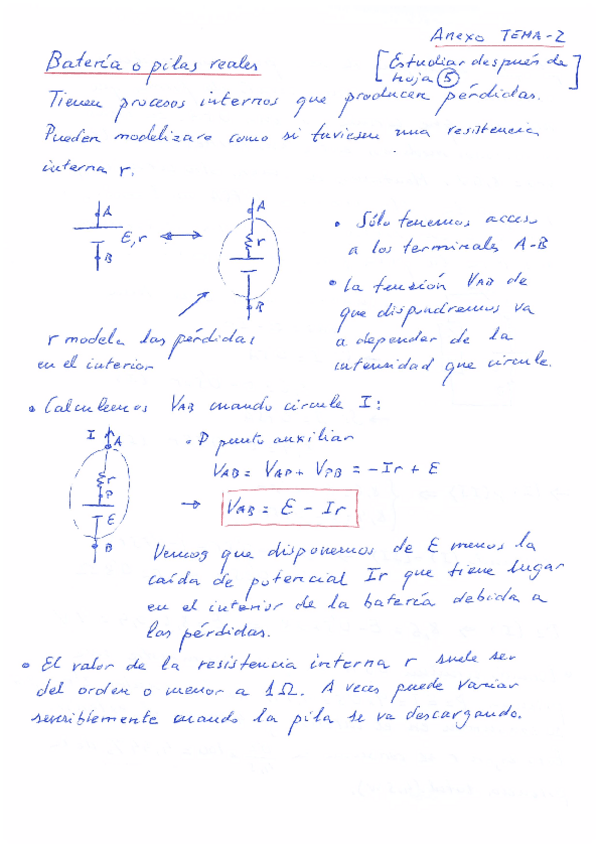 Anexo TEMA-2
Batería o pilas reales
[Estudiar después de
hoja 5]
Tienen procesos internos que producen pérdidas.
Pueden modelizarse como si tuviesen una resistencia
interna r.
A
E, r
B
A
r
B
• Sólo tenemos acceso
a los terminales A-B
• La tensión VAB de
que dispondremos va
a depender de la
intensidad que circule.
r modela las pérdidas
en el interior
• Calculemos VAB cuando circule I:
I
A
r
P
E
B
• P punto auxiliar
VAB = VAP + VPB = -Ir + E
→ VAB = E - Ir
Vemos que disponemos de E menos la
caída de potencial Ir que tiene lugar
en el interior de la batería debida a
las pérdidas.
• El valor de la resistencia interna r suele ser
del orden o menor a 1Ω. A veces puede variar
sensiblemente cuando la pila se va descargando.